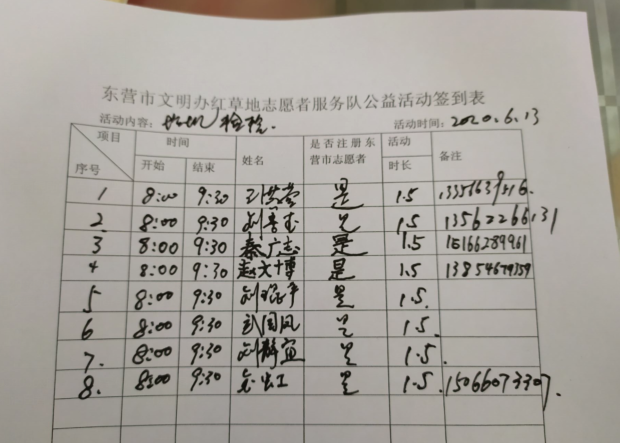 东营市文明办红草地志愿者服务队公益活动签到表
活动内容： 检 活动时间：2020.6.13
项目 时间 姓名 是否注册东营市志愿者 活动时长 备注
序号 开始 结束
1 8:00 9:30 是 1.5
2 8:00 9:30 刘秀 是 1.5 13562266131
3 8:00 9:30 秦广志 是 1.5 15166289961
4 8:00 9:30 赵文博 是 1.5 13854679359
5 8:00 9:30 刘 是 1.5
6 8:00 9:30 武国凤 是 1.5
7. 8:00 9:30 刘静宜 是 1.5.
8. 8:00 9:30 是 1.5. 15066073307.